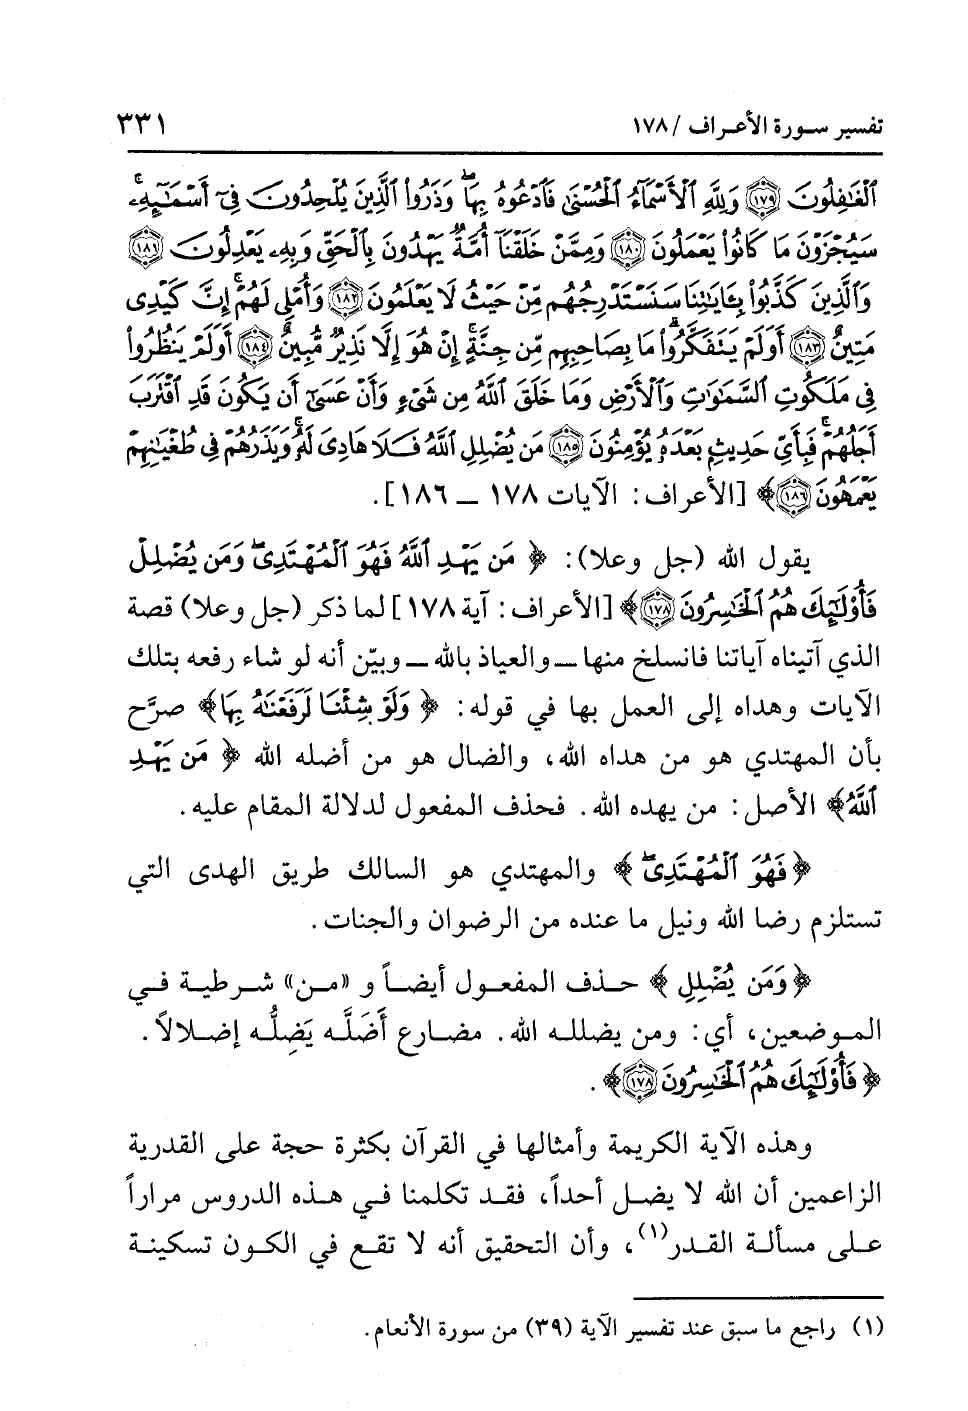 تفسير سورة الأعراف / ١٧٨ ٣٣١
ٱلۡغَٰفِلُونَ ١٧٩ وَلِلَّهِ ٱلۡأَسۡمَآءُ ٱلۡحُسۡنَىٰ فَٱدۡعُوهُ بِهَاۖ وَذَرُواْ ٱلَّذِينَ يُلۡحِدُونَ فِيٓ أَسۡمَٰٓئِهِۦۚ
سَيُجۡزَوۡنَ مَا كَانُواْ يَعۡمَلُونَ ١٨٠ وَمِمَّنۡ خَلَقۡنَآ أُمَّةٞ يَهۡدُونَ بِٱلۡحَقِّ وَبِهِۦ يَعۡدِلُونَ ١٨١
وَٱلَّذِينَ كَذَّبُواْ بِـَٔايَٰتِنَا سَنَسۡتَدۡرِجُهُم مِّنۡ حَيۡثُ لَا يَعۡلَمُونَ ١٨٢ وَأُمۡلِي لَهُمۡۚ إِنَّ كَيۡدِي
مَتِينٌ ١٨٣ أَوَلَمۡ يَتَفَكَّرُواْۗ مَا بِصَاحِبِهِم مِّن جِنَّةٍۚ إِنۡ هُوَ إِلَّا نَذِيرٞ مُّبِينٌ ١٨٤ أَوَلَمۡ يَنظُرُواْ
فِي مَلَكُوتِ ٱلسَّمَٰوَٰتِ وَٱلۡأَرۡضِ وَمَا خَلَقَ ٱللَّهُ مِن شَيۡءٖ وَأَنۡ عَسَىٰٓ أَن يَكُونَ قَدِ ٱقۡتَرَبَ
أَجَلُهُمۡۖ فَبِأَيِّ حَدِيثِۭ بَعۡدَهُۥ يُؤۡمِنُونَ ١٨٥ مَن يُضۡلِلِ ٱللَّهُ فَلَا هَادِيَ لَهُۥۚ وَيَذَرُهُمۡ فِي طُغۡيَٰنِهِمۡ
يَعۡمَهُونَ ١٨٦﴾ [الأعراف: الآيات ١٧٨ ــ ١٨٦].
يقول الله (جل وعلا): ﴿ مَن يَهۡدِ ٱللَّهُ فَهُوَ ٱلۡمُهۡتَدِيۖ وَمَن يُضۡلِلۡ
فَأُوْلَٰٓئِكَ هُمُ ٱلۡخَٰسِرُونَ ١٧٨﴾ [الأعراف: آية ١٧٨] لما ذكر (جل وعلا) قصة
الذي آتيناه آياتنا فانسلخ منها ــ والعياذ بالله ــ وبيّن أنه لو شاء رفعه بتلك
الآيات وهداه إلى العمل بها في قوله: ﴿ وَلَوۡ شِئۡنَا لَرَفَعۡنَٰهُ بِهَا﴾ صرَّح
بأن المهتدي هو من هداه الله، والضال هو من أضله الله ﴿ مَن يَهۡدِ
ٱللَّهُ﴾ الأصل: من يهده الله. فحذف المفعول لدلالة المقام عليه.
﴿فَهُوَ ٱلۡمُهۡتَدِيۖ ﴾ والمهتدي هو السالك طريق الهدى التي
تستلزم رضا الله ونيل ما عنده من الرضوان والجنات.
﴿وَمَن يُضۡلِلۡ ﴾ حذف المفعول أيضاً و «من» شرطية في
الموضعين، أي: ومن يضلله الله. مضارع أَضَلَّه يَضِلُّه إضلالاً.
﴿ فَأُوْلَٰٓئِكَ هُمُ ٱلۡخَٰسِرُونَ ١٧٨﴾.
وهذه الآية الكريمة وأمثالها في القرآن بكثرة حجة على القدرية
الزاعمين أن الله لا يضل أحداً، فقد تكلمنا في هذه الدروس مراراً
على مسألة القدر(١)، وأن التحقيق أنه لا تقع في الكون تسكينة
(١) راجع ما سبق عند تفسير الآية (٣٩) من سورة الأنعام.